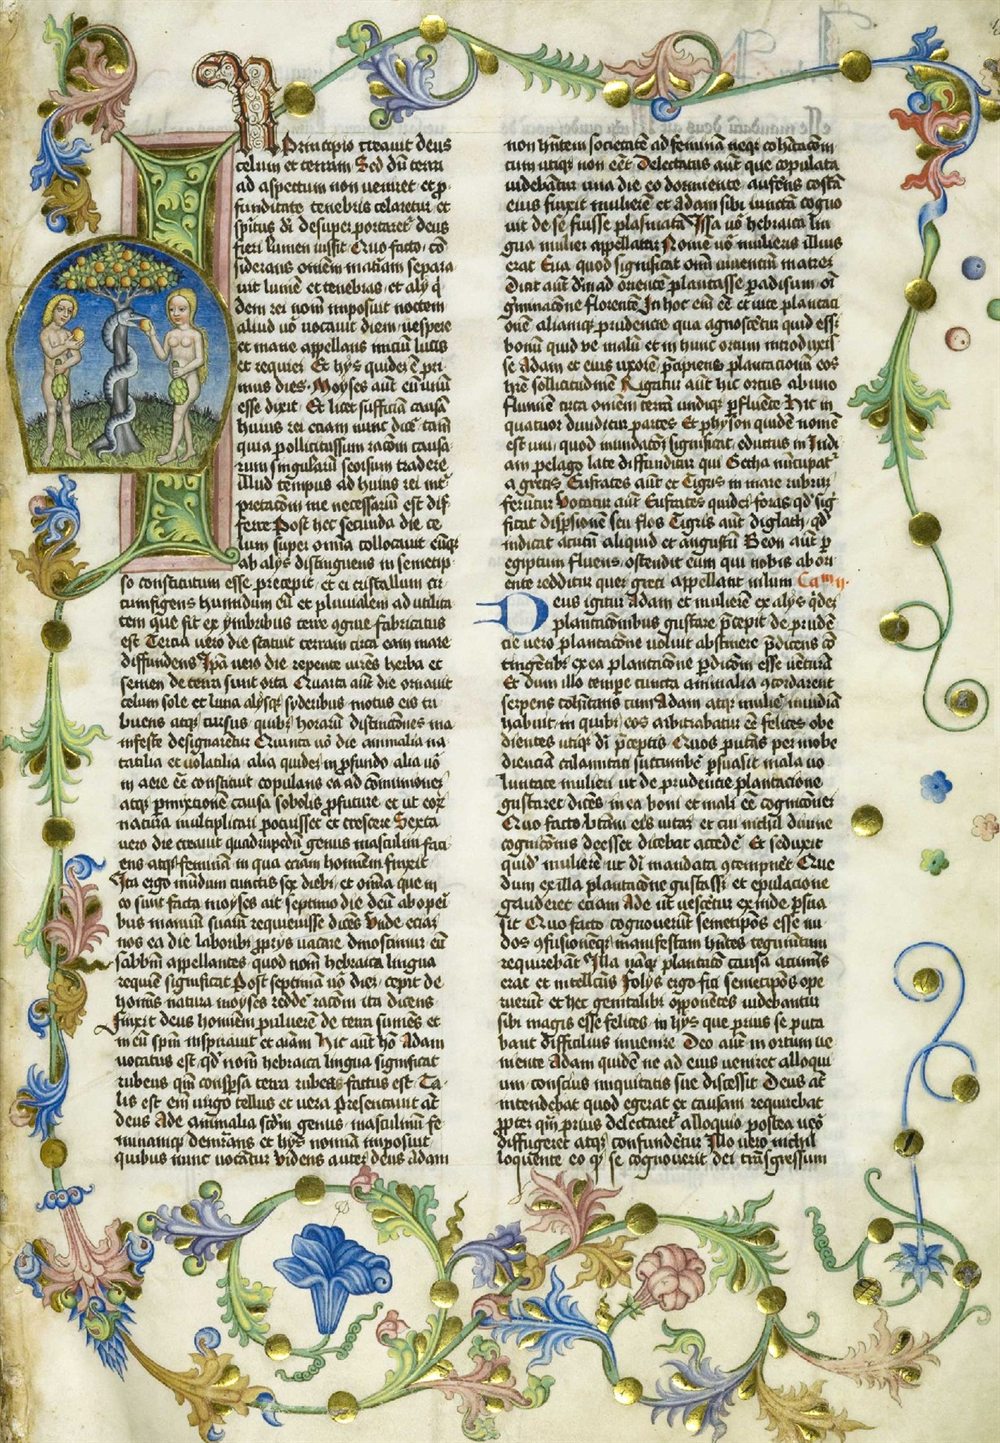 In Principio creauit deus
celum et terram Sed dū terra
ad aspectum non veniret et ꝓ
funditate tenebris celaretur et
spiritus dī desuper portaretˀ deus
fieri lumen iussit Quo facto cō
siderans omnem materiam separa
uit lumen et tenebras et aly q̄
dem rei nom̄ imposuit noctem
aliud vō vocauit diem vespere
et mane appellans iniciū lucis
et requiei Et hys quidē ē pri
mus dies Moyses aūt eū unū
esse dixit Et licet sufficiā causā
huius rei eciam nunc dicē tam̄
quia pollicitus sum racōm causa
rum singularū seorsum tradere
illud tempus ad huius rei in̄t
pretacōm me necessariū est dif
ferre Post hec secunda die ce
lum super om̄ia collocauit eūq̄
ab alys distinguens in semetip
so constitutum esse precepit et ei cristallum cir
cumfigens humidum eū et pluuialem ad utilita
tem que fit ex ymbribus terre 9grue fabricatus
est Tercia vero die statuit terram circa eam mare
diffundens Ip̄a vero die repente virēs herba et
semen de terra sunt orta Quarta aūt die ornauit
celum sole et luna alysq̄ syderibus motus eis tri
buens atq̄ cursus quibˀ horarū distinctōnes ma
nifeste designarētur Quinta vō die animalia na
tatilia et volatilia alia quidē in ꝓfundo alia vō
in aere eē constituit copulans ea ad cōmunionē
atq̄ ꝑmixtionē causa sobolis ꝓfuture et ut eoꝝ
natura multiplicari potuisset et crescere Sexta
vero die creauit quadrupedū genus masculum faci
ens atq̄ feminam in qua eciam hominem finxit
Ita ergo mūdum cunctis sex diebˀ et om̄ia que in
eo sunt facta moyses ait septimo die deū ab operi
bus manuū suarū requieuisse dicēs Unde eciaꝫ
nos ea die laboribˀ ꝓprys vacare dinoscimur eū
sabbm̄ appellantes quod nom̄ hebraica lingua
requiem significat Post septimā vō diē cepit de
homīs natura moyses reddē racōm ita dicens
Finxit deus hominem puluerē de terra sumēs et
in eū spm̄ inspirauit et aīam Hic aūt hō Adam
vocatus est qd̓ nom̄ hebraica lingua significat
rubens qm̄ conspsa terra rubea factus est Ta
lis est em̄ virgo tellus et vera Presentauit aūt
deus Ade animalia scdm̄ genus masculinū fe
mininūq̄ demrāns et hys nomīa imposuit
quibus nunc vocātur Videns autē deus adam
non hn̄tem societatē ad feminā neq̄ cohītacōm
cum utiq̄ non eēt Delectatus aūt que copulata
videbātur una die eo dormiente auferēs costā
eius finxit mulierē et Adam sibi iunctā cogno
uit de se fuisse plasmatā Issa vō hebraica lin
gua mulier appellatur Nomē vō mulieris illius
erat Eua quod significat om̄ viuentiū matrē
Dicit aūt dm̄ ad orientē plantasse padisum oī
gīminacōne florentē In hoc em̄ eē et vite plantaci
onē aliamq̄ prudencie qua agnoscētur quid essꝫ
bonū quid ve malū et in hunc ortum introduxisꝫ
se Adam et eius vxorē p̄cipiens plantacionū eos
hr̄e sollicitudinē Rigatur aūt hic ortus ab uno
flumine circa omnem terrā undiq̄ ꝑfluente Hic in
quatuor diuiditur partes Et physon quidē nomē
est uni quod inundacōꝫ significat eductus in Indi
am pelago late diffunditur qui Getha nūcupatˀ
a grecis Eufrates aūt et Tigris in mare rubrū
feruntur Vocatur aūt Eufrates quidē foras qd̓ sigˀ
ficat disꝑsionem seu flos Tigris aūt diglath qd̓
indicat acutū aliquid et angustū Geon aūt ꝑ
egiptum fluens ostendit eum qui nobis ab ori
ente redditur quē greci appellant nilum Cam ii
Deus igitur Adam et mulierē ex alys q̄deꝫ
plantacōnibus gustare p̄cepit de prudē
cie vero plantacōne voluit abstinere p̄dicens cō
tingētibˀ ex ea plantacōne ꝑdicōm esse vēturā
Et dum illo tempe cuncta animalia 9cordarent
serpens cohītans cum Adam atq̄ muliē inuidiā
habuit in quibˀ eos arbitrabatur eē felices obe
dientes utiq̄ dī p̄ceptis Quos putās per inobe
dienciā calamitati succumbē psuasit mala vo
luntate mulieri ut de prudencie plantacione
gustaret dicēs in ea boni et mali eē cognicōnē
Quo facto vtām eis vitā et cui nichil diuine
cognicōnis deesset dicebat accedē Et seduxit
quidˀ mulierē ut dī mandata 9tempnēt Que
dum ex illa plantacōne gustassꝫ et epulacione
gauderet eciam Ade ut vescētur ex inde psua
sit Quo facto cognouerūt semetip̄os esse nu
dos 9fusionēq̄ manifestam hn̄tes tegumētum
requirebāt Illa nāq̄ plantacō causa acumīs
erat et intellectus Folys ergo ficꝫ semetip̄os ope
ruerūt et hec genitalibˀ opponētes videbantur
sibi magis esse felices in hys que prius se puta
bant difficilius inuenire Deo aūt in ortum ve
niente Adam quidē ne ad eius veniret alloqui
um conscius iniquitatis sue discessit Deus aūt
intendebat quod egerat et causam requirebat
ꝓpter qm̄ prius delectaretˀ alloquio postea vero
diffugeret atq̄ confundētur Illo vero nichil
loquente eo qꝫ se cognouerit dei trāsgressum